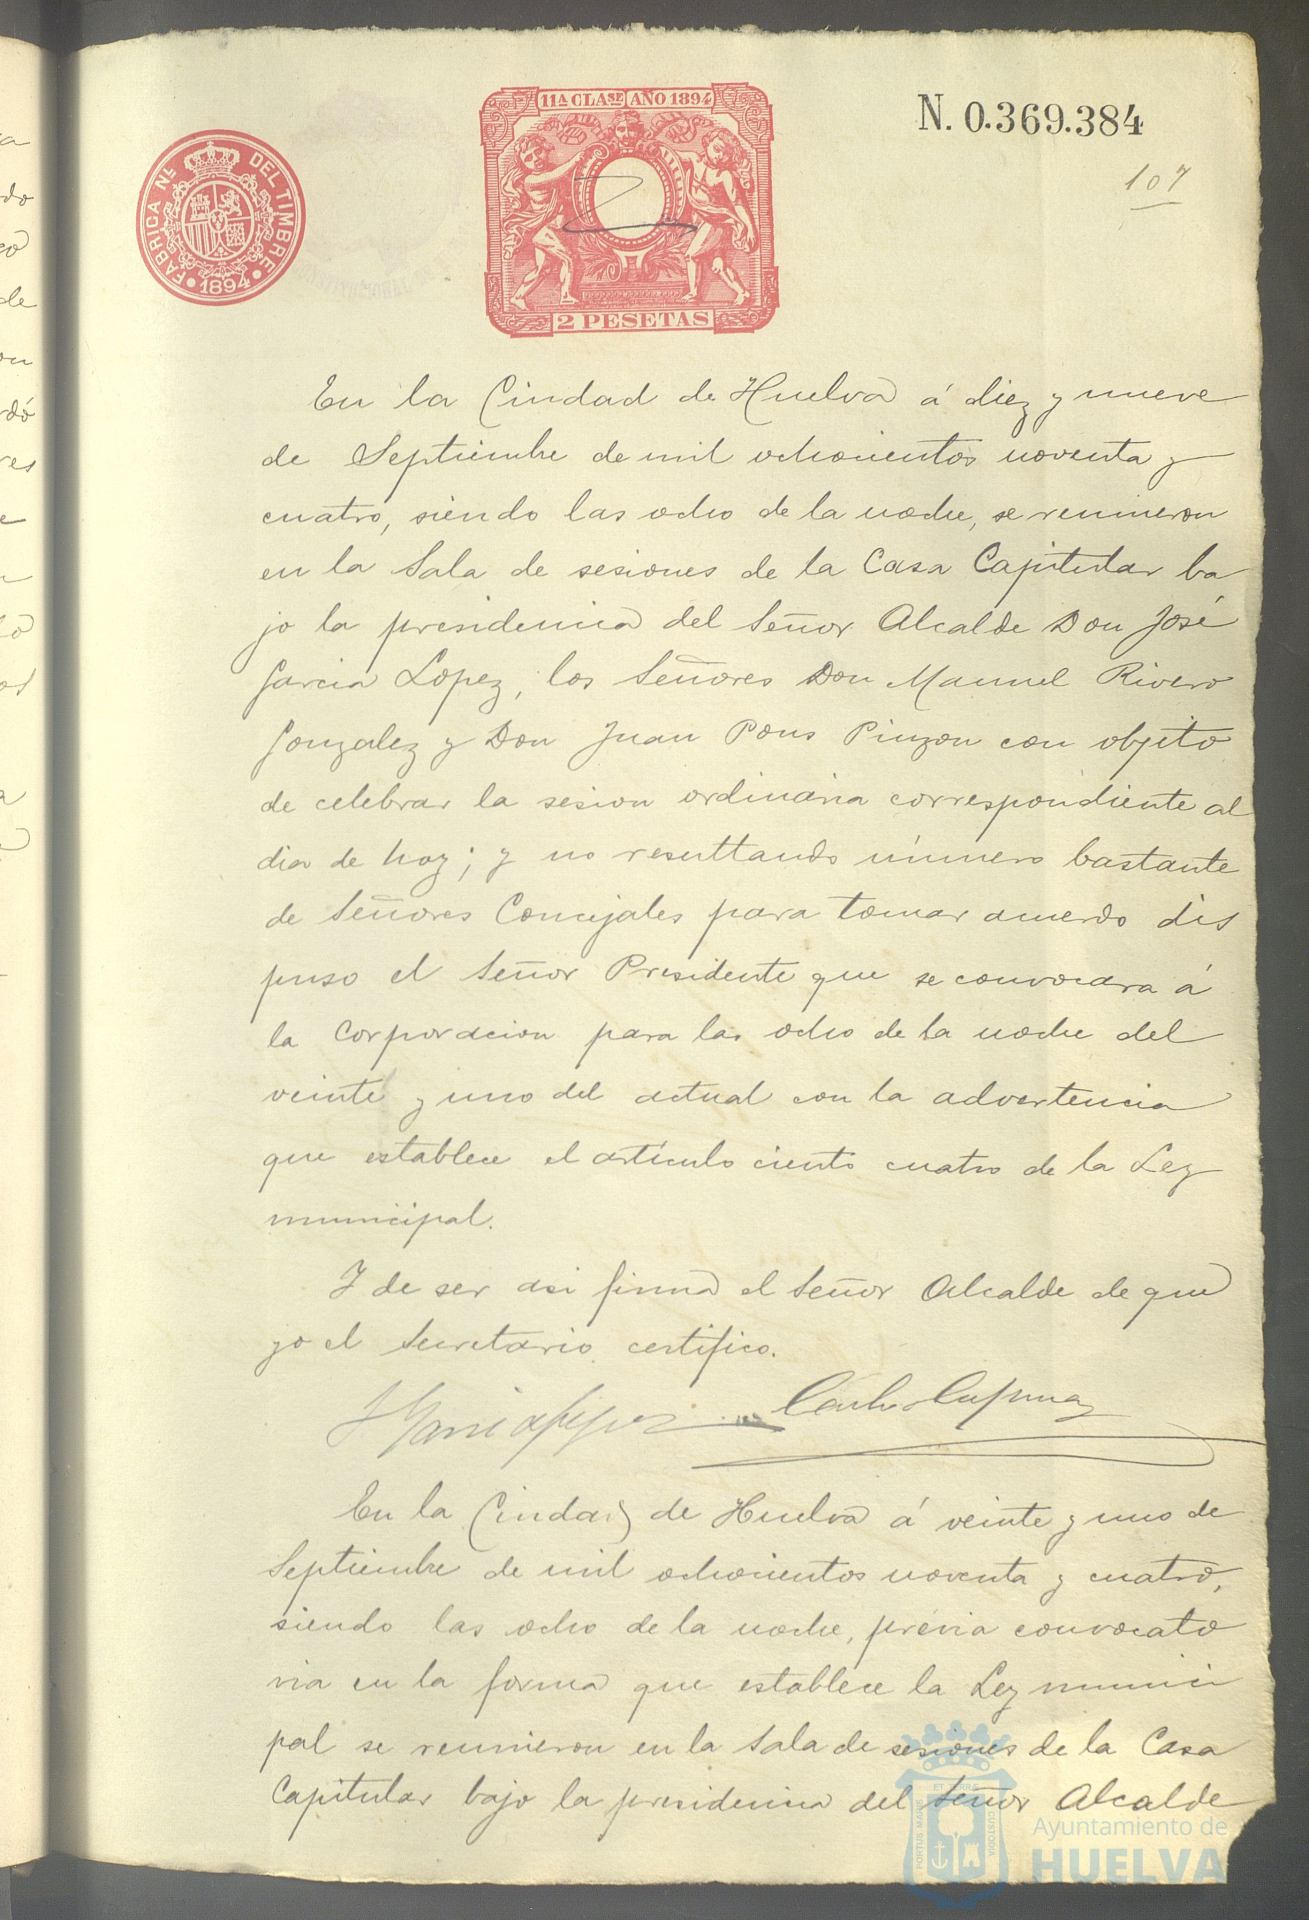 11A CLASE AÑO 1894
N. 0.369.384
FABRICA NL DEL TIMBRE
1894
107
2 PESETAS
En la Ciudad de Huelva á diez y nueve
de Septiembre de mil ochocientos noventa y
cuatro, siendo las ocho de la noche, se reunieron
en la Sala de sesiones de la Casa Capitular ba
jo la presidencia del Señor Alcalde Don José
Garcia Lopez, los Señores Don Manuel Rivero
Gonzalez y Don Juan Pons Pinzon con objeto
de celebrar la sesion ordinaria correspondiente al
dia de hoy; y no resultando número bastante
de Señores Concejales para tomar acuerdo dis
puso el Señor Presidente que se convocara á
la Corporacion para las ocho de la noche del
veinte y uno del actual con la advertencia
que establece el artículo ciento cuatro de la Ley
municipal.
Y de ser asi firma el Señor Alcalde de que
yo el Secretario certifico.
J Garcia Lopez
En la Ciudad de Huelva á veinte y uno de
Septiembre de mil ochocientos noventa y cuatro,
siendo las ocho de la noche, prévia convocato
ria en la forma que establece la Ley munici
pal se reunieron en la Sala de sesiones de la Casa
Capitular bajo la presidencia del Señor Alcalde
PORTUS MARIS ET TERRE CUSTODIA
Ayuntamiento de
HUELVA